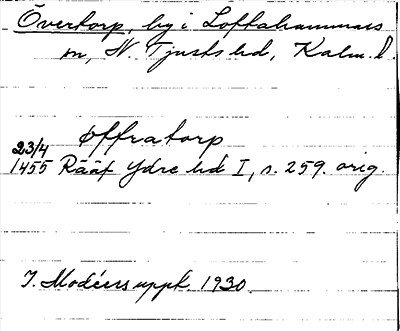 Övertorp, by i Loftahammars
sn, N. Tjusts hd, Kalm. l.
øffratorp
23/4
1455 Rääf Ydre hd I, s. 259. orig.
I. Modéers uppt. 1930.